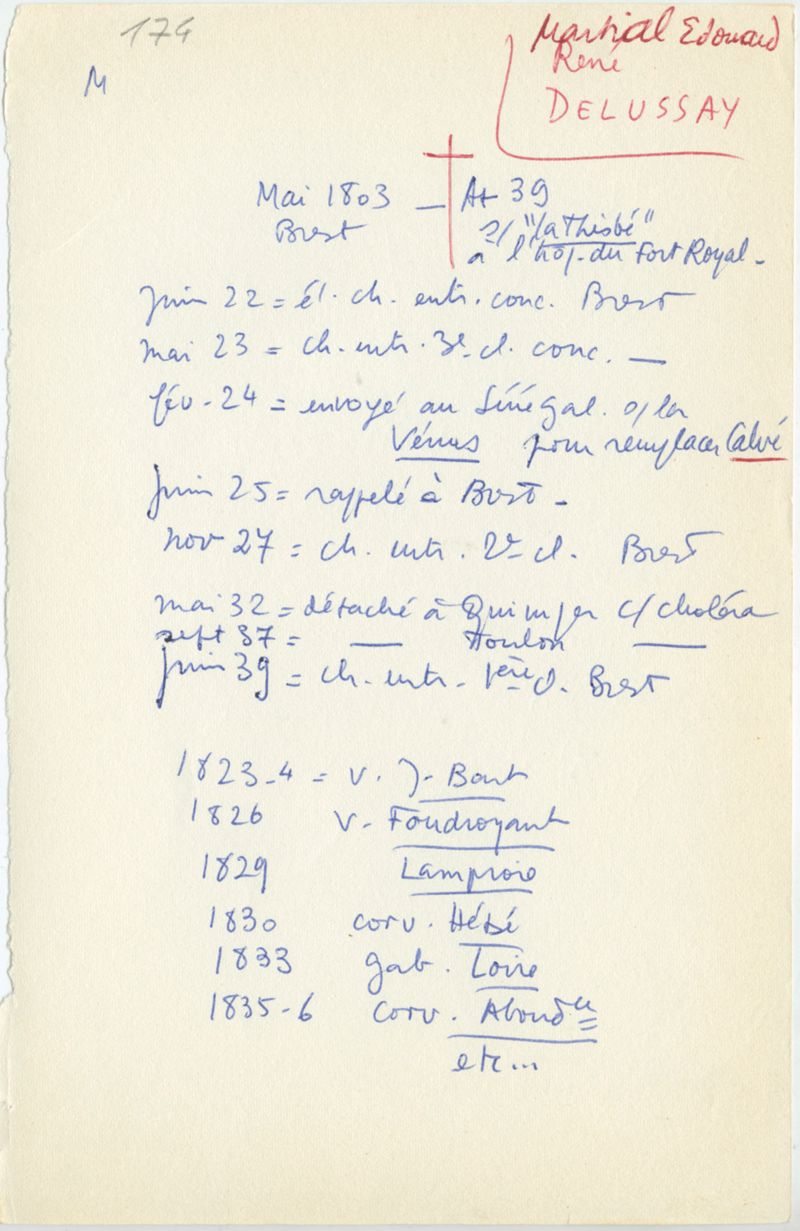 174
M
Martial Edouard
René
DELUSSAY
Mai 1803 — At 39
Brest
s/ "la Thisbé"
à l'hôp. du Fort Royal -
Juin 22 = él. ch. entr. conc. Brest
mai 23 = ch. entr. 3e cl. conc. —
fév - 24 = envoyé au Sénégal. s/ la
Vénus pour remplacer Calvé
Juin 25 = rappelé à Brest -
nov 27 = ch. entr. 2e cl. Brest
mai 32 = détaché à Quimper c/ choléra
sept 37 = — Toulon —
Juin 39 = ch. entr. 1ère cl. Brest
1823-4 = v. J. Bart
1826 v. Foudroyant
1829 Lamproie
1830 corv. Hébé
1833 gab. Loire
1835-6 corv. Abondce
etc...